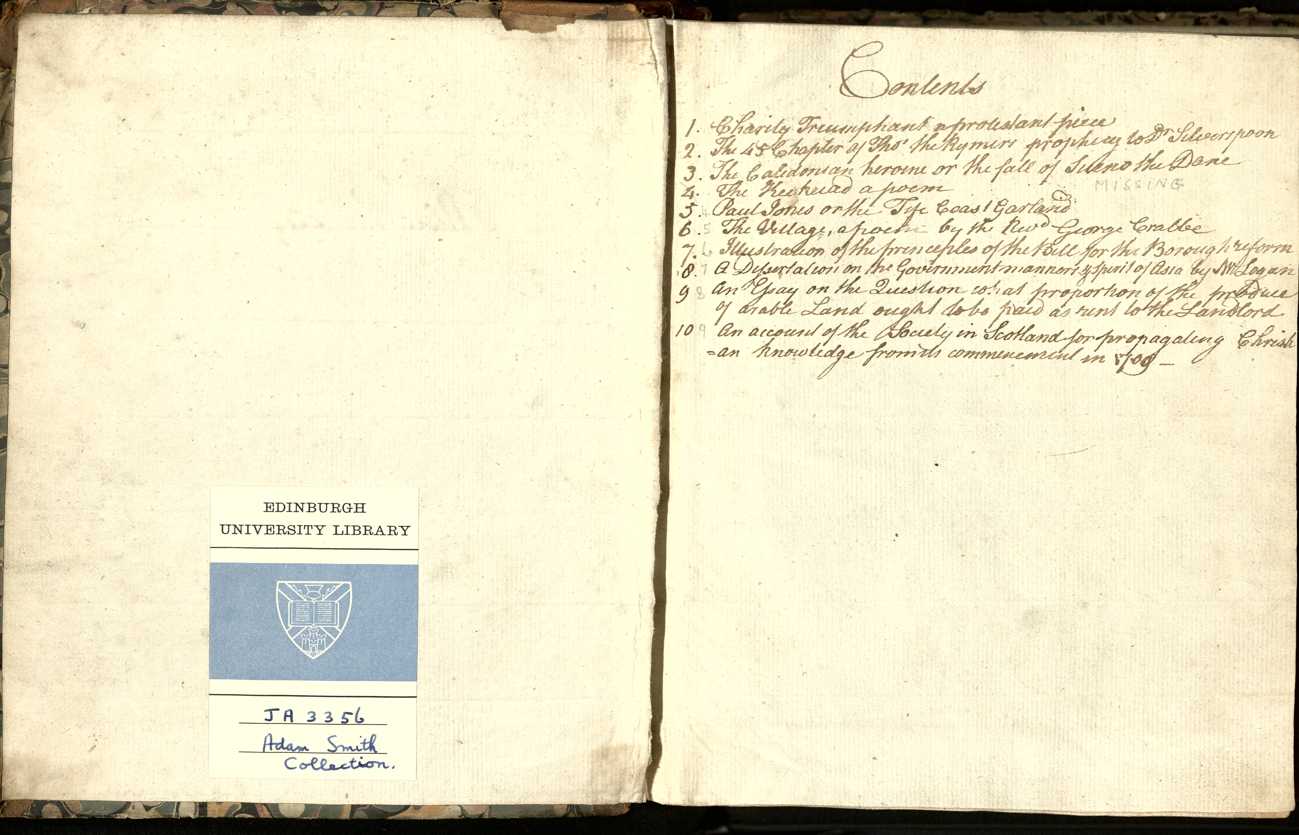 EDINBURGH
UNIVERSITY LIBRARY
JA 3356
Adam Smith
Collection.
Contents
1. Charity Triumphant a protestant piece
2. The 45 Chapter of Thos the Rymers prophecy to Dr Silverspoon
3. The Caledonian heroine or the fall of Sueno the Dane
4. The Keekeiad a poem MISSING
5 4 Paul Jones or the Fife Coast Garland
6. 5 The Village, a poem by the Revd George Crabbe
7. 6 Illustration of the principles of the Bill for the Borough reform
8. 7 A Dissertation on the Government manners & spirit of Asia by Mr Logan
9 8 An Essay on the Question what proportion of the produce
of arable Land ought to be paid as rent to the Landlord
10 9 An account of the Society in Scotland for propagating Christi
=an knowledge from its commencement in 1709 —